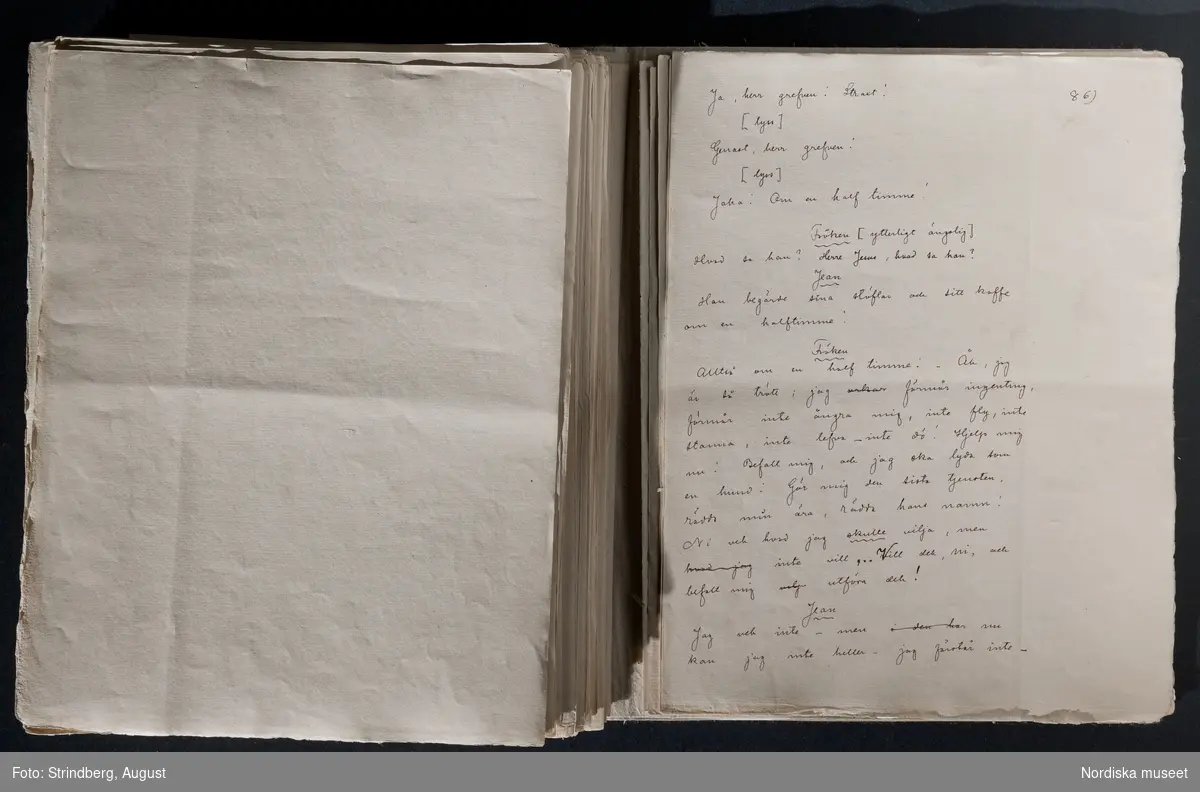 86)
Ja, herr grefven! Strax!
[lyss]
Genast, herr grefven!
[lyss]
Jaha! Om en half timme!
Fröken [ytterligt ängslig]
Hvad sa han? Herre Jesus, hvad sa han?
Jean
Han begärde sina stöflar och sitt kaffe
om en halftimme!
Fröken
Alltså om en half timme! - Åh, jag
är så trött; jag orkar förmår ingenting,
förmår inte ångra mig, inte fly, inte
stanna, inte lefva - inte dö! Hjelp mig
nu! Befall mig, och jag ska lyda som
en hund! Gör mig den sista tjensten,
rädda min ära, rädda hans namn!
Ni vet hvad jag skulle vilja, men
hvad jag inte vill... Vill det, ni, och
befall mig utföra det!
Jean
Jag vet inte - men i den har nu
kan jag inte heller - jag förstår inte -
Foto: Strindberg, August
Nordiska museet